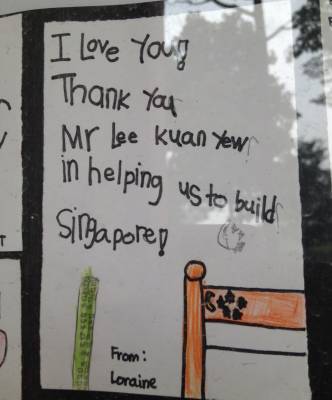 I Love You!
Thank You
Mr Lee Kuan Yew
in helping us to build
Singapore!
From:
Loraine